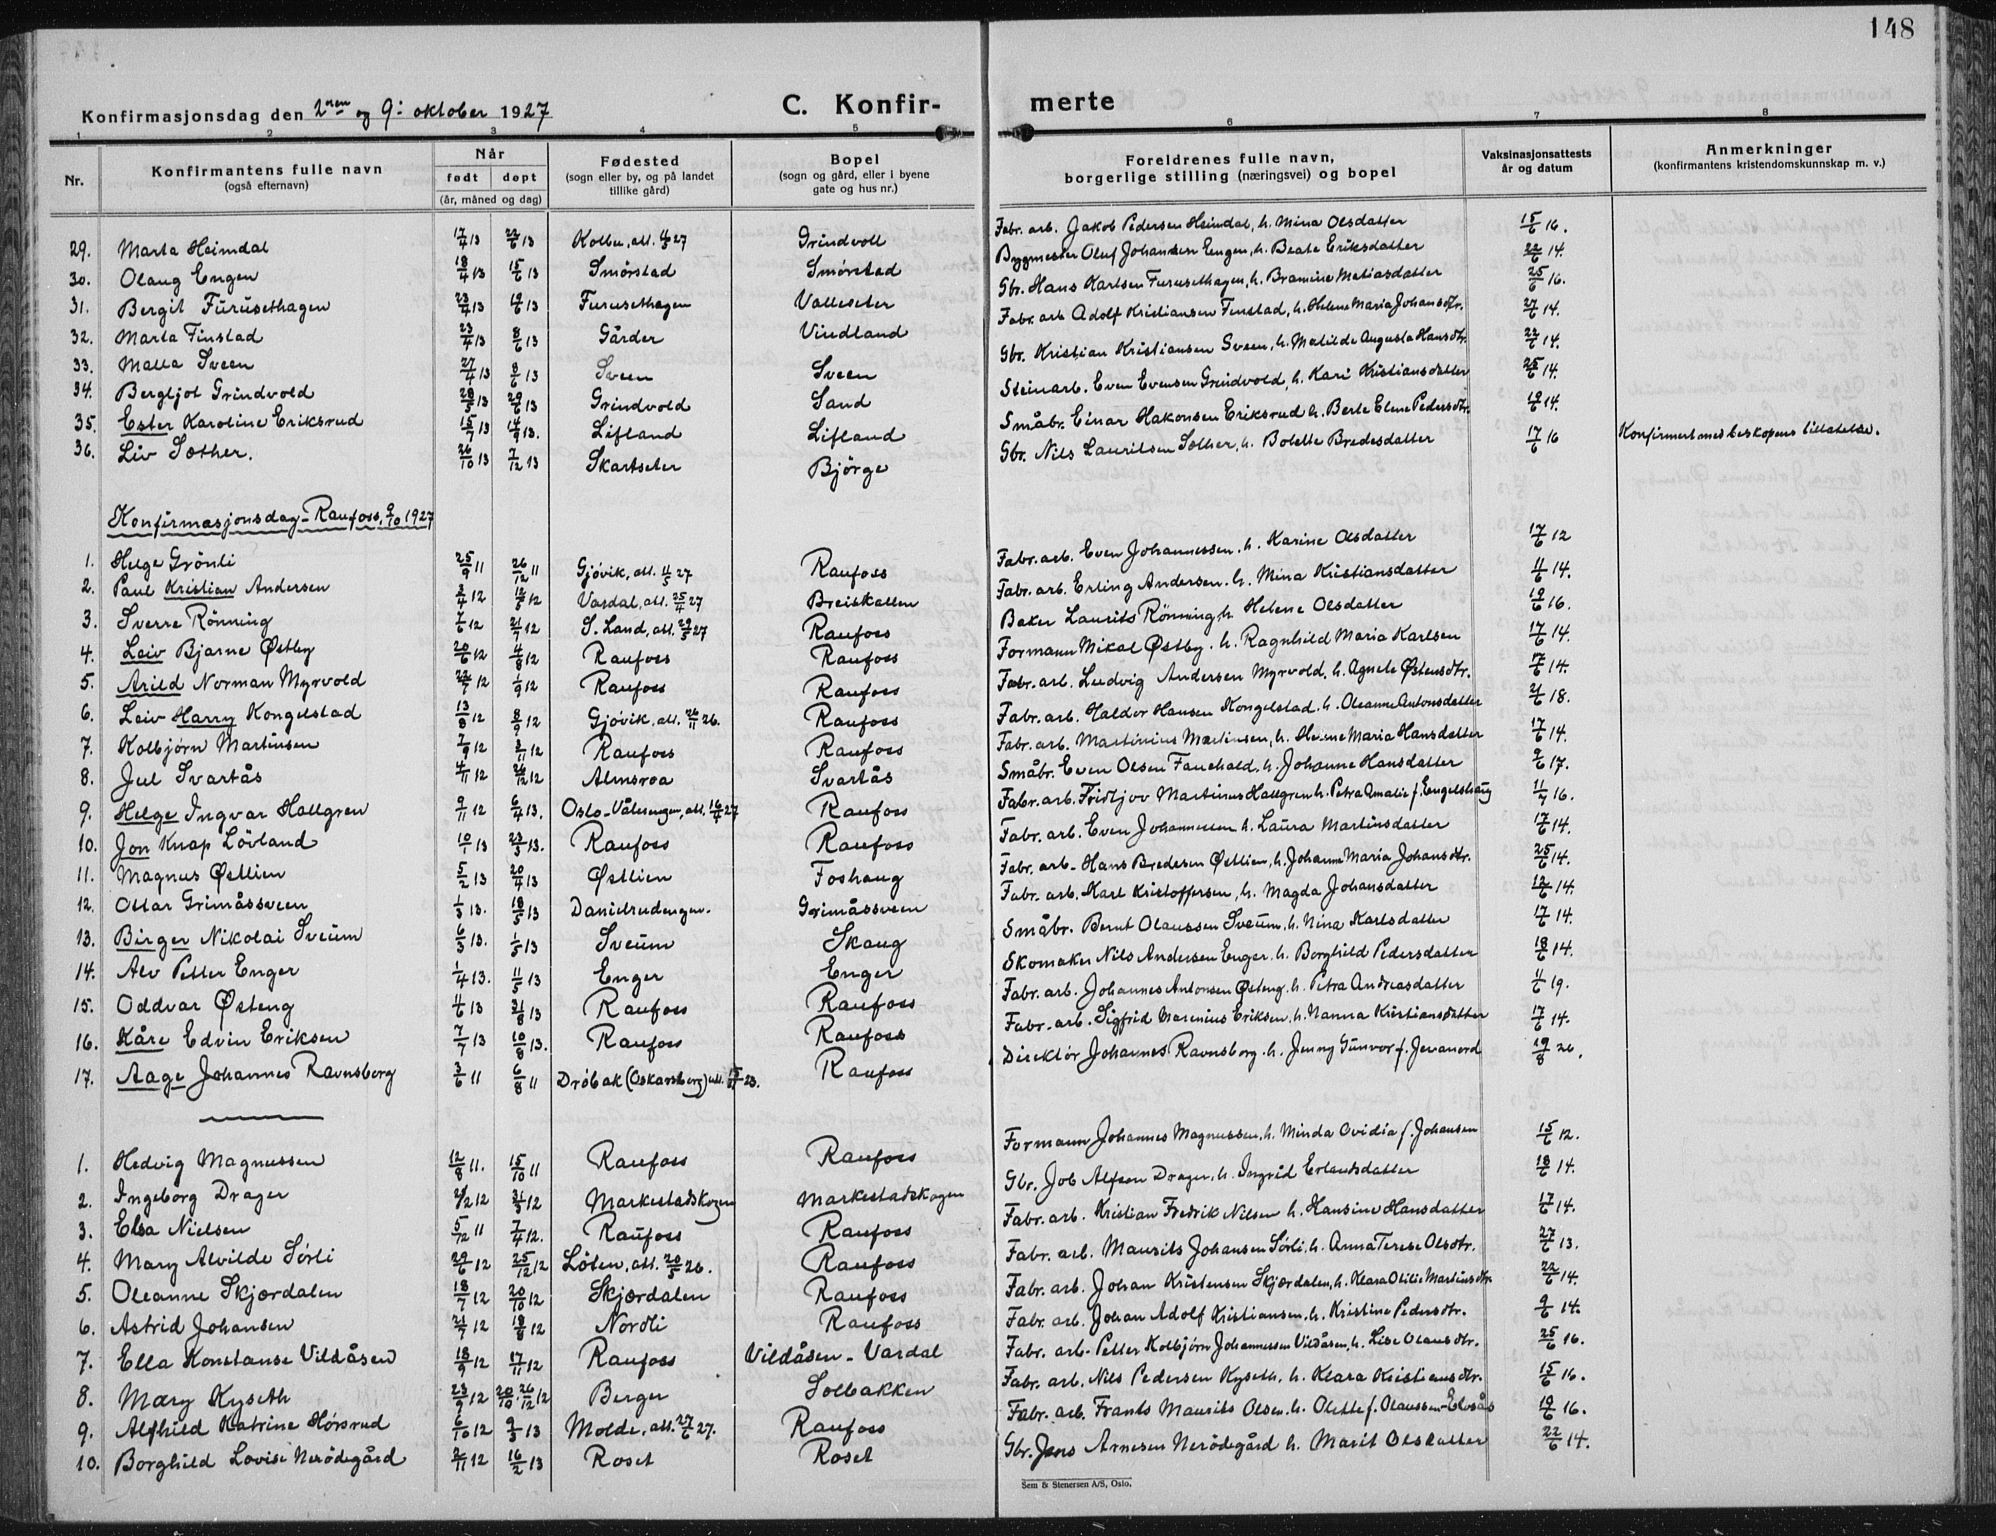 148
Konfirmasjonsdag den 2nen og 9: oktober 1927 C. Konfir- merte
1 2 3 4 5 6 7 8
Nr. Konfirmantens fulle navn (også efternavn) Når født døpt (år, måned og dag) Fødested (sogn eller by, og på landet tillike gård) Bopel (sogn og gård, eller i byene gate og hus nr.) Foreldrenes fulle navn, borgerlige stilling (næringsvei) og bopel Vaksinasjonsattests år og datum Anmerkninger (konfirmantens kristendomskunnskap m. v.)
29. Marta Heimdal 17/4 13 22/6 13 Kolbu, att. 4/5 27 Grindvoll Fabr. arb. Jakob Pedersen Heimdal, h. Mina Olsdatter 15/6 16.
30. Olaug Engen 18/4 13 15/6 13 Smörstad Smörstad Byggmester Oluf Johansen Engen, h. Beate Eriksdatter 22/6 14.
31. Bergit Furusethagen 23/4 13 19/6 13 Furusethagen Valleseter Gbr. Hans Karlsen Furusethagen, h. Bramine Matiasdatter 25/6 16.
32. Marta Finstad 23/4 13 8/6 13 Gårder Vindland Fabr. arb. Adolf Kristiansen Finstad, h. Helene Maria Johansdtr. 27/6 14.
33. Malla Sveen 27/4 13 8/6 13 Sveen Sveen Gbr. Kristian Kristiansen Sveen, h. Matilde Augusta Hansdtr. 22/6 14.
34. Bergljot Grindvold 28/5 13 29/6 13 Grindvold Sand Steinarb. Even Evensen Grindvold, h. Kari Kristiansdatter 25/6 14.
35. Ester Karoline Eriksrud 15/7 13 14/9 13. Lifland Lifland Småbr. Einar Hakonsen Eriksrud h. Berte Eline Pedersdtr. 19/6 14.
36. Liv Sæther. 26/10 13 7/12 13 Skartseter Björge Gbr. Nils Lauritsen Sæther, h. Bolette Bredesdatter 17/6 16 Konfirmert med biskopens tillatelse.
Konfirmasjonsdag - Raufoss, 9/10 1927
1. Helge Grönli 25/9 11 26/12 11 Gjövik, att. 11/5 27 Raufoss Fabr. arb. Even Johannessen. h. Karine Olsdatter 17/6 12
2. Paul Kristian Andersen 3/4 12 12/5 12 Vardal, att. 25/4 27 Breiskallen Fabr. arb. Erling Andersen. h. Mina Kristiansdatter 11/6 14.
3. Sverre Rönning 7/6 12 21/7 12 S. Land, att. 29/5 27 Raufoss Baker Laurits Rönning, h. Helene Olsdatter 19/6 16.
4. Leiv Bjarne Østby 20/6 12 4/8 12 Raufoss Raufoss Formann Mikal Østby. h. Ragnhild Maria Karlsen 17/6 14.
5. Arild Norman Myrvold 22/7 12 1/9 12 Raufoss Raufoss Fabr. arb. Ludvig Andersen Myrvold. h. Agnete Østensdtr. 17/6 14.
6. Leiv Harry Kongelstad 13/8 12 8/9 12 Gjövik, att. 26/11 26. Raufoss Fabr. arb. Haldor Hansen Kongelstad. h. Oleanne Antonsdatter 21/6 18.
7. Kolbjörn Martinsen 7/9 12 3/11 12 Raufoss Raufoss Fabr. arb. Martinius Martinsen, h. Hanne Maria Hansdatter 17/6 14.
8. Jul Svartås 4/11 12 26/12 12 Almsroa Svartås Småbr. Even Olsen Fauchald. h. Johanne Hansdatter 9/6 17.
9. Helge Ingvar Hallgren 9/11 12 6/4 13. Oslo-Vålerengen, att. 16/4 27 Raufoss Fabr. arb. Fridtjov Martinus Hallgren h. Petra Amalie f. Engelshaug 11/7 16.
10. Jon Knap Lövland 10/1 13 23/3 13. Raufoss Raufoss Fabr. arb. Even Johannessen h. Laura Martinsdatter 17/6 14.
11. Magnus Østlien 5/2 13 20/4 13 Østlien Foshaug Fabr. arb. Hans Bredesen Østlien, h. Johanne Maria Johansdtr. 25/6 14.
12. Ottar Grimåssveen 1/3 13. 18/5 13 Danielrudengen. Grimåssveen Fabr. arb. Karl Kristoffersen, h. Magda Johansdatter 12/6 14.
13. Birger Nikolai Sveum 6/3 13. 1/5 13 Sveum Skaug Småbr. Bernt Olaussen Sveum, h. Nina Karlsdatter 17/6 14.
14. Alv Petter Enger 1/4 13. 11/5 13 Enger Enger Skomaker Nils Andersen Enger. h. Borghild Pedersdatter 18/6 14.
15. Oddvar Østeng 4/6 13 31/8 13 Raufoss Raufoss Fabr. arb. Johannes Antonsen Østeng. h. Petra Andreasdatter 11/6 19.
16. Kåre Edvin Eriksen 7/7 13 10/8 13. Raufoss Raufoss Fabr. arb. Sigfrid Marenius Eriksen. h. Nanna Kristiansdatter 17/6 14.
17. Aage Johannes Ravnsborg 3/6 11 6/8 11 Dröbak (Oskarsborg) att. 23. Raufoss Direktör Johannes Ravnsborg. h. Jenny Gunvor f. Jevanord 19/8 26.
1. Hedvig Magnussen 12/8 11. 15/10 11 Raufoss Raufoss Formann Johannes Magnussen. h. Minda Ovidia f. Johansen 15/6 12.
2. Ingeborg Drager 2/2 12 31/3 12 Markestadskogen Markestadskogen Gbr. Job Alfsen Drager, h. Ingrid Erlandsdatter 18/6 14.
3. Elsa Nielsen 5/12 11 7/4 12. Raufoss Raufoss Fabr. arb. Kristian Fredrik Nilsen h. Hansine Hansdatter 17/6 14.
4. Mary Alvilde Sörli 29/6 12 25/12 12 Löten, att. 20/5 26. Raufoss Fabr. arb. Maurits Johansen Sörli. h. Anna Terese Olsdtr. 27/6 13.
5. Oleanne Skjærdalen 18/7 12 20/10 12 Skjærdalen Raufoss Fabr. arb. Johan Kristensen Skjærdalen, h. Klara Otilie Martinsdtr. 22/6 14.
6. Astrid Johansen 21/7 12 18/8 12 Nordli Raufoss Fabr. arb. Johan Adolf Kristiansen. h. Kristine Pedersdtr. 9/6 14.
7. Ella Konstanse Vildåsen 18/9 12 17/11 12 Raufoss Vildåsen - Vardal Fabr. arb. Petter Kolbjörn Johannessen Vildåsen, h. Lise Olausdtr. 25/6 16.
8. Mary Kyseth 23/9 12 20/10. 26/12 12 Berger Solbakken Fabr. arb. Nils Pedersen Kyseth. h. Klara Kristiansdtr. 15/6 16.
9. Alfhild Katrine Hörsrud 6/10 12 9/3 13 Molde, att. 27/6 27. Raufoss Fabr. arb. Frants Maurits Olsen. h. Olette f. Olaussen-Elvsås 19/6 16.
10. Borghild Lovise Nerödegård 2/11 12 16/2 13 Roset Roset Gbr. Jens Arnesen Nerödegård h. Marit Olsdatter 22/6 14.
Sem & Stenersen A/S, Oslo.